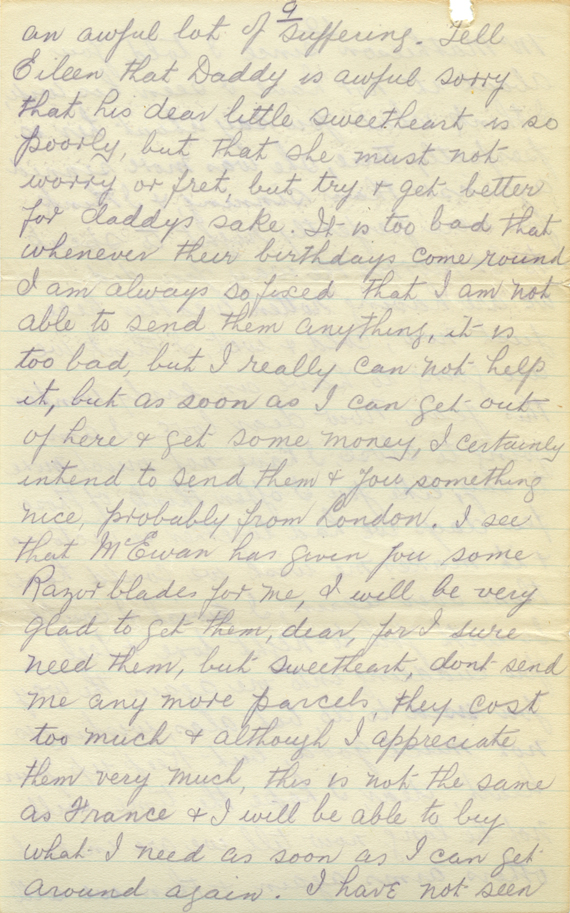 9
an awful lot of suffering. Tell
Eileen that Daddy is awful sorry
that his dear little sweetheart is so
poorly, but that she must not
worry or fret, but try & get better
for daddys sake. It is too bad that
whenever their birthdays come round
I am always so fixed that I am not
able to send them anything, it is
too bad, but I really can not help
it, but as soon as I can get out
of here & get some money, I certainly
intend to send them & you something
nice, probably from London. I see
that McEwan has given you some
Razor blades for me, I will be very
glad to get them, dear, for I sure
need them, but sweetheart, dont send
me any more parcels, they cost
too much & although I appreciate
them very much, this is not the same
as France & I will be able to buy
what I need as soon as I can get
around again. I have not seen